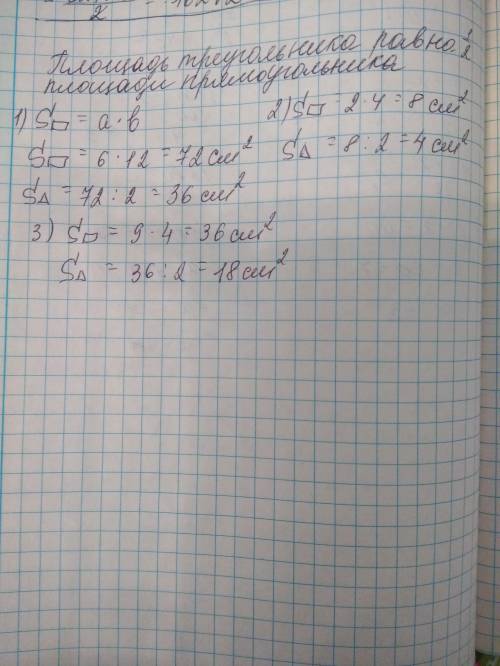 Площадь треугольника равна 1/2
площади прямоугольника
1) S▭ = а·в
S▭ = 6·12 = 72 см²
S△ = 72 : 2 = 36 см²
2) S▭ = 2·4 = 8 см²
S△ = 8 : 2 = 4 см²
3) S▭ = 9·4 = 36 см²
S△ = 36 : 2 = 18 см²